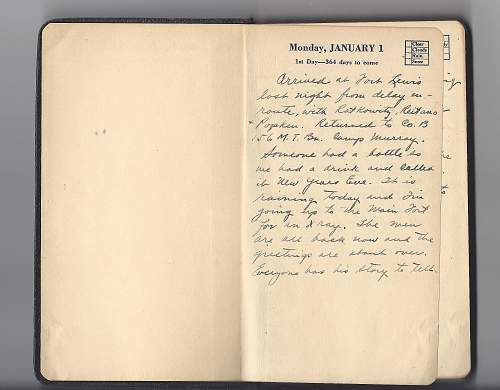 Monday, JANUARY 1
1st Day—364 days to come
Clear
Clouds
Rain
Snow
Arrived at Fort Lewis
last night from delay en-
route, with Ratkowitz, Reitano
+ Popken. Returned to Co. B
56 M.T. Bn. Camp Murray.
Someone had a bottle so
we had a drink and called
it New Years Eve. It is
raining today and I'm
going up to the Main Fort
for an X ray. The men
are all back now and the
greetings are about over.
Everyone has his story to tell.